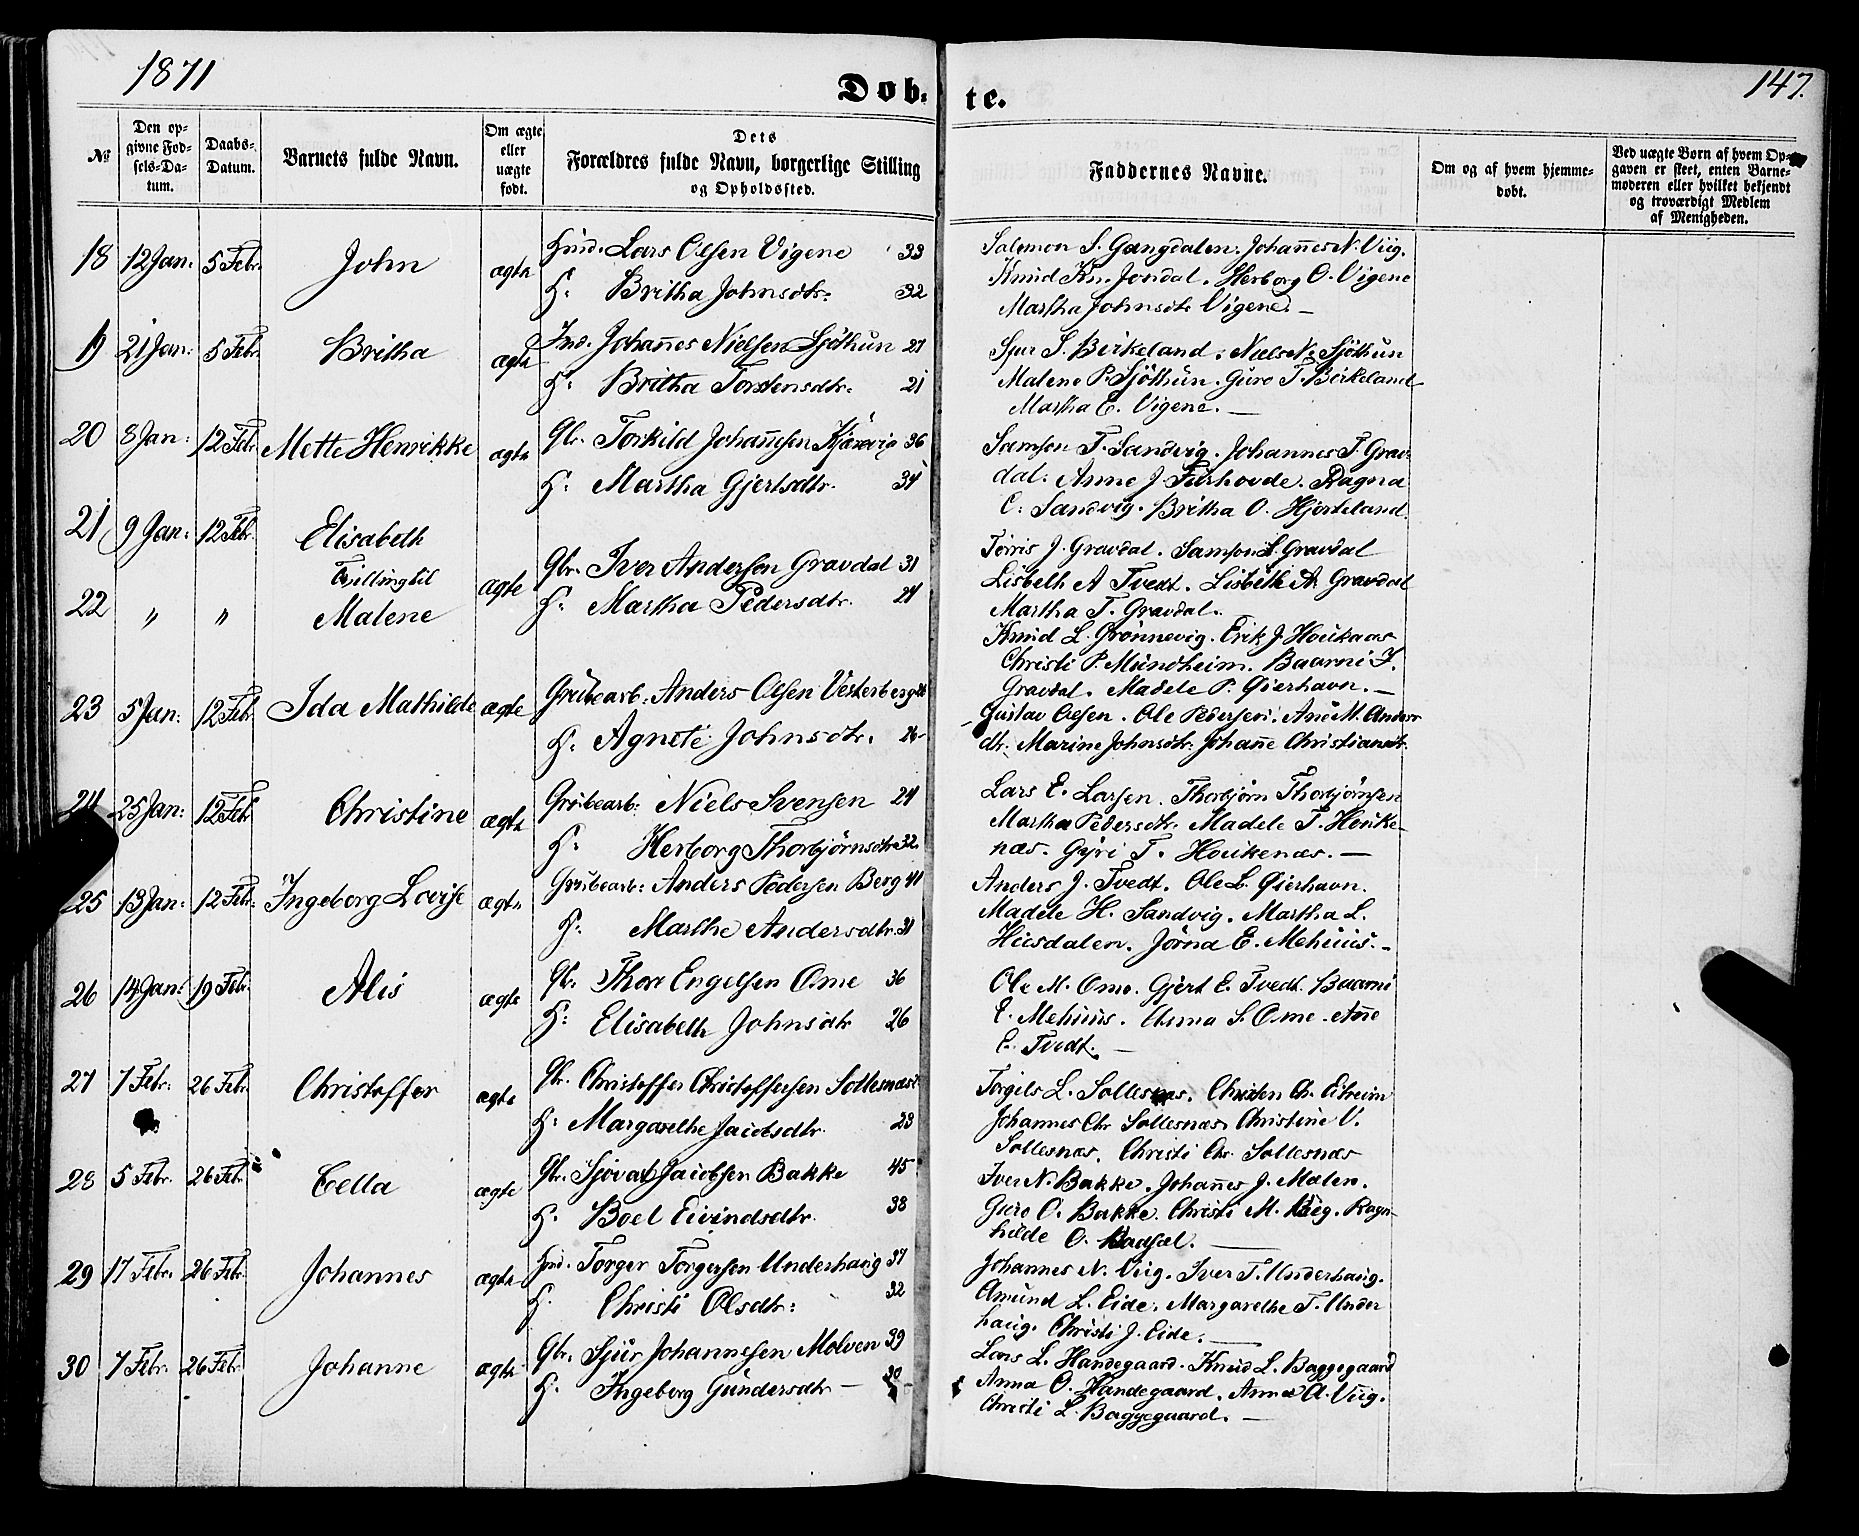 1871
Døb-
te.
147.
No
Den op-
givne Fød-
sels-Da-
tum.
Daabs-
Datum.
Barnets fulde Navn.
Om ægte
eller
uægte
født.
Dets
Forældres fulde Navn, borgerlige Stilling
og Opholdssted.
Faddernes Navne.
Om og af hvem hjemme-
døbt.
Ved uægte Børn af hvem Op-
gaven er skeet, enten Barne-
moderen eller hvilket bekjendt
og troværdigt Medlem
af Menigheden.
18 12 Jan: 5 Febr. John ægte Huusd. Lars Olsen Vigene 33
H: Britha Johnsdtr. 32
Salomon S. Gangdalen. Johannes N. Viig.
Knud Kn. Jondal. Herborg O. Vigene
Martha Johnsdtr Vigene. —
19 21 Jan: 5 Febr. Britha ægte Ind. Johannes Nielsen Sjöthun 27
H: Britha Torstensdtr. 21
Sjur S. Birkeland. Niels N. Sjöthun
Malene P. Sjöthun. Guro T. Birkeland
Martha E. Vigene. —
20 8 Jan: 12 Febr. Mette Henrikke ægte Gbr. Torkild Johannesen Kjærevig 36
H: Martha Gjertsdtr. 34
Samson T. Sandvig. Johannes T. Grav-
dal. Anne J. Furhovde. Ragna
C. Sandvig. Britha O. Hjorteland.
21 9 Jan: 12 Febr. Elisabeth
Tvilling til
22 " " Malene
ægte Gbr. Iver Andersen Gravdal 31
H: Martha Pedersdtr. 24
Tørris J. Gravdal. Samson L. Gravdal
Lisbeth A Tvedt. Lisbeth A. Gravdal
Martha T. Gravdal.
Knud L. Grønnevig. Erik J. Houkaas
Christi P. Mundheim. Baarni I.
Gravdal. Madele P. Øierhavn. —
23 5 Jan: 12 Febr Ida Mathilde ægte Grubearb. Anders Olsen Vesterberg 26
H: Agnete Johnsdtr. 26
Gustav Olsen. Ole Pedersen. Ane M. Anders-
dtr. Marine Johnsdtr. Johanne Christiansdtr.
24 25 Jan: 12 Febr Christine ægte Grubearb: Niels Svensen 24
H: Herborg Thorbjörnsdtr 32.
Lars E. Larsen. Thorbjörn Thorbjörnsen
Martha Pedersdtr. Madele T. Houke-
næs. Gyri T. Houkenæs. —
25 13 Jan: 12 Febr: Ingeborg Lovise ægte Grubearb: Anders Pedersen Berg 41
H: Marthe Andersdtr. 31
Anders J. Tvedt. Ole L. Øierhavn.
Madele H. Sandvig. Martha L.
Huusdalen. Jørna E. Mehuus. -
26 14 Jan: 19 Febr. Alis ægte Gbr. Thore Engelsen Ome 36
H: Elisabeth Johnsdtr 26
Ole M. Ome. Gjert E. Tvedt. Baarni
E. Mehuus. Anna S. Ome. Anne
E. Tvedt. —
27 7 Febr: 26 Febr Christoffer ægte Gbr. Christoffer Christoffersen Sollesnæs
H: Margarethe Jacobsdtr. 23
Torgils L. Sollesnæs. Christen Ch. Eitreim
Johannes Chr Sollesnæs. Christine V.
Sollesnæs. Christi Chr. Sollesnæs
28 5 Febr. 26 Febr. Cella ægte Gbr. Sjovat Jacobsen Bakke 45
H. Boel Eivindsdtr. 38
Iver N. Bakke. Johannes J. Mælen.
Guro O. Bakke. Christi M. Viig. Ragn-
hilde O. Aadsæl. —
29 17 Febr. 26 Febr. Johannes ægte Huusd. Torger Torgersen Underhaug 37
H. Christi Olsdtr: 32
Johannes N. Viig. Iver T. Underhaug.
Amund L. Eide. Margarethe T. Under
haug. Christi J. Eide. —
30 7 Febr. 26 Febr. Johanne ægte Gbr. Sjur Johannesen Molven 39
H. Ingeborg Gundersdtr — 30
Lars L. Handegaard. Knud L. Baggegaard
Anna O. Handegaard. Anna A. Viig.
Christi L. Baggegaard. —